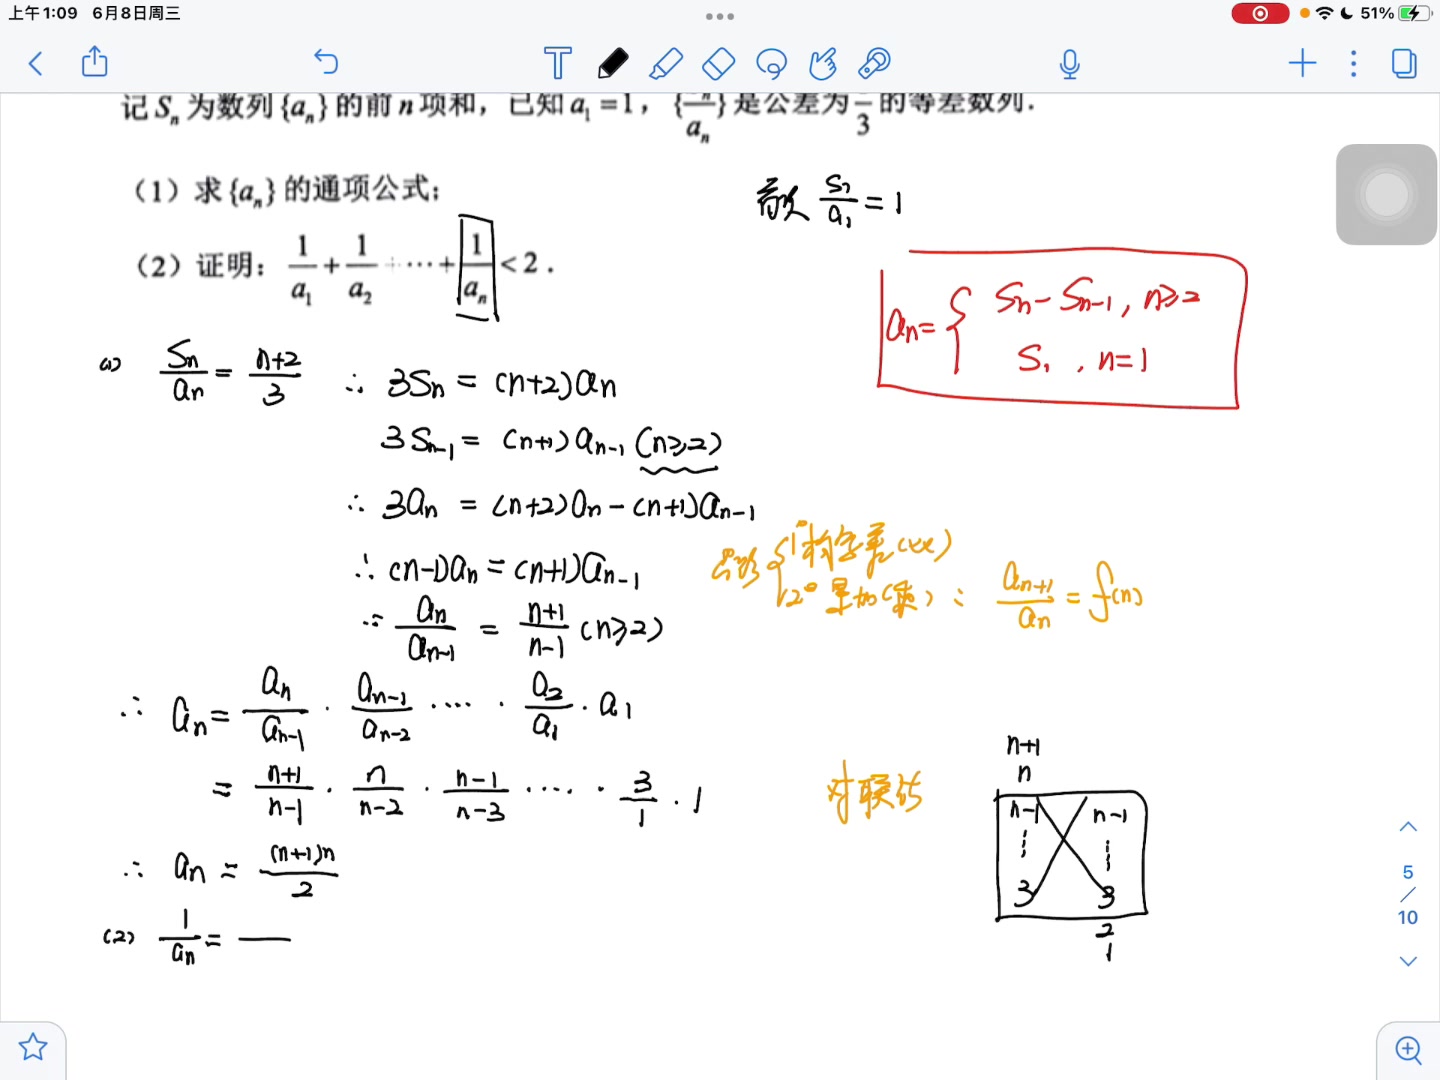 上午1:09 6月8日周三
51%
记 Sₙ 为数列 {aₙ} 的前 n 项和，已知 a₁ = 1，{ⁿ/aₙ} 是公差为 /3 的等差数列．
（1）求 {aₙ} 的通项公式；
（2）证明：1/a₁ + 1/a₂ + ··· + 1/aₙ < 2．
= 1
aₙ = { Sₙ - Sₙ₋₁, n≥2
S₁, n=1
(1) Sₙ/aₙ = (n+2)/3 ∴ 3Sₙ = (n+2)aₙ
3Sₙ₋₁ = (n+1)aₙ₋₁ (n≥2)
∴ 3aₙ = (n+2)aₙ - (n+1)aₙ₋₁
∴ (n-1)aₙ = (n+1)aₙ₋₁
1° 构
2° 累加(乘)： aₙ₊₁/aₙ = f(n)
∴ aₙ/aₙ₋₁ = (n+1)/(n-1) (n≥2)
∴ aₙ = aₙ/aₙ₋₁ · aₙ₋₁/aₙ₋₂ ···· · a₂/a₁ · a₁
= (n+1)/(n-1) · n/(n-2) · (n-1)/(n-3) ···· · 3/1 · 1
对联法
n+1
n
n-1 n-1
3 3
2
1
∴ aₙ = (n+1)n/2
(2) 1/aₙ = —
5
/
10